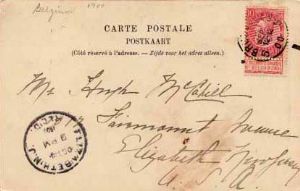 Belgium 1900
CARTE POSTALE
POSTKAART
(Côté réservé à l'adresse. — Zijde voor het adres alleen.)
Mr. Hugh McCahill
Fairmount Avenue
Elizabeth New Jersey
U.S.A.
ELIZABETH N.J.
REC'D.
9 AM